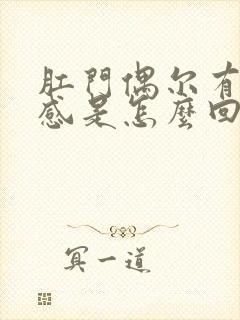 肛門偶尔有
感是怎麼回
冥一道